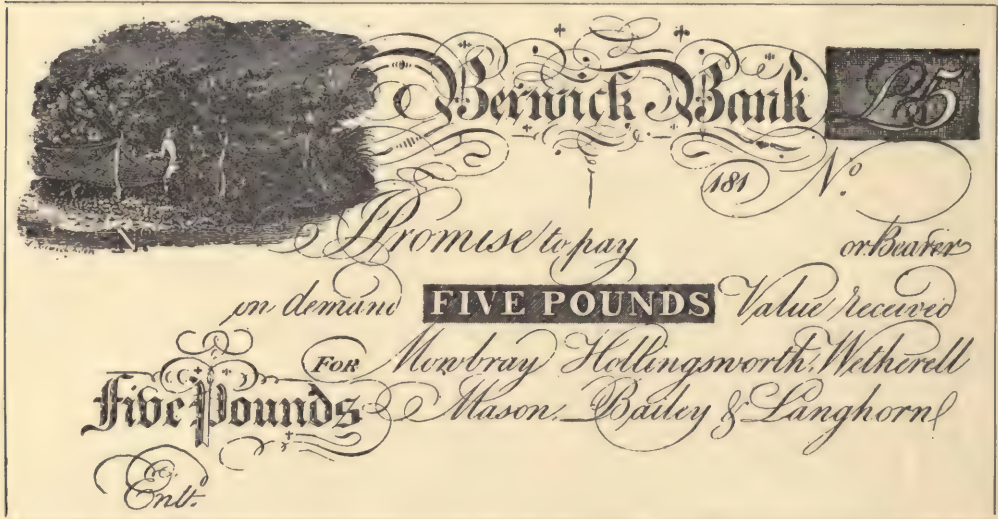 Berwick Bank £5
181 No
I Promise to pay or Bearer
on demand FIVE POUNDS Value received
FOR Mowbray Hollingsworth, Wetherell
Five Pounds Mason, Bailey & Langhorn
Entd.